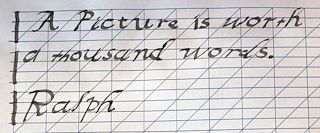 A Picture is worth
a thousand words.
Ralph